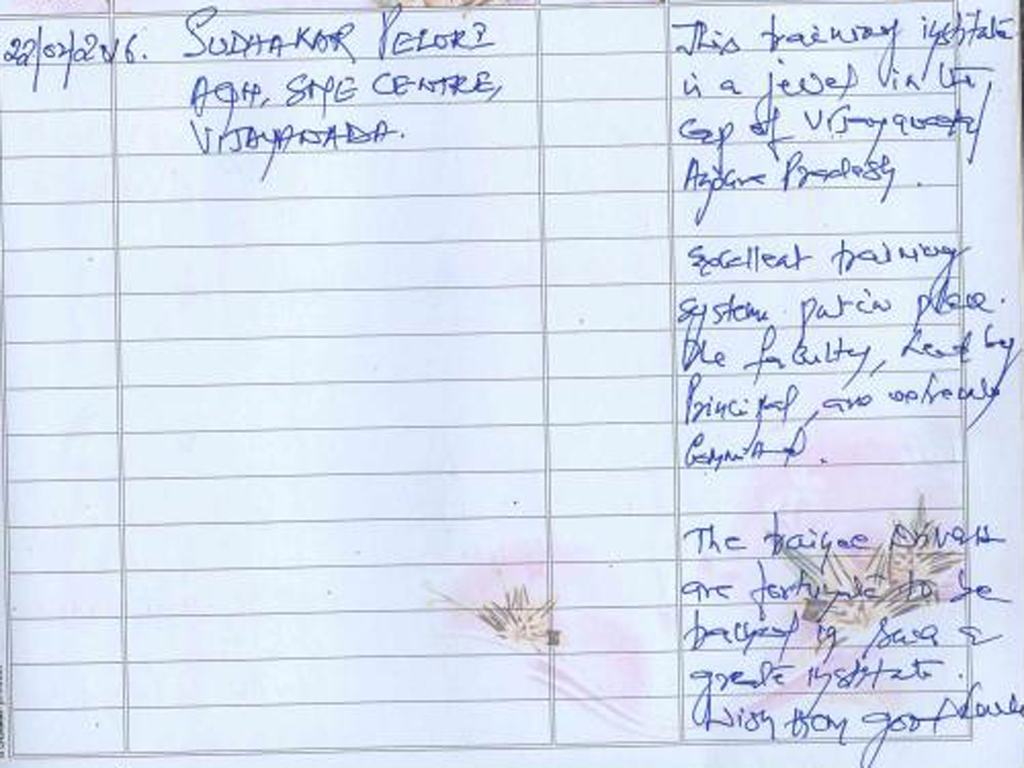 22/07/2016. SUDHAKAR PELURI
AGM, SME CENTRE,
VIJAYAWADA.
This training institute
is a jewel in the
Cap of Vijayawada,
Andhra Pradesh.
Excellent training
system put in place.
The faculty, head by
Principal, are extremely
Committed.
The trainee drivers
are fortunate to be
trained in such a
great institute.
Wish them good luck